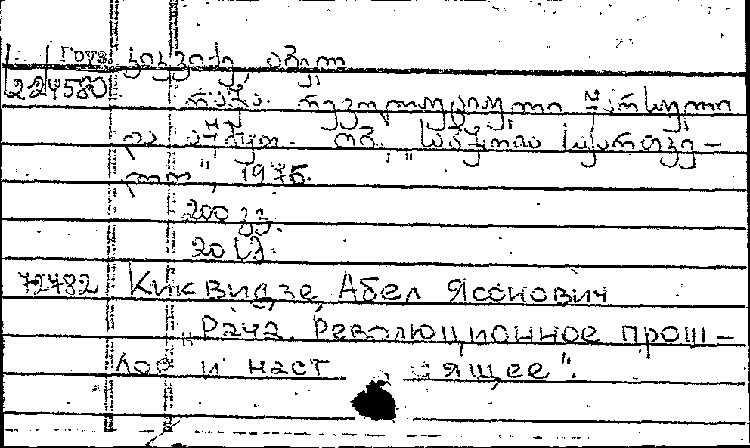 Груз კიკვიძე, აბელ
224580 რაჭა. რევოლუციური წარსული
და აწმყო. თბ., „საბჭოთა საქართვე-
ლო", 1975.
200 გვ.
20 კ.
72782 Киквидзе, Абел Ясонович
„Рача. Революционное прош-
лое и настоящее".